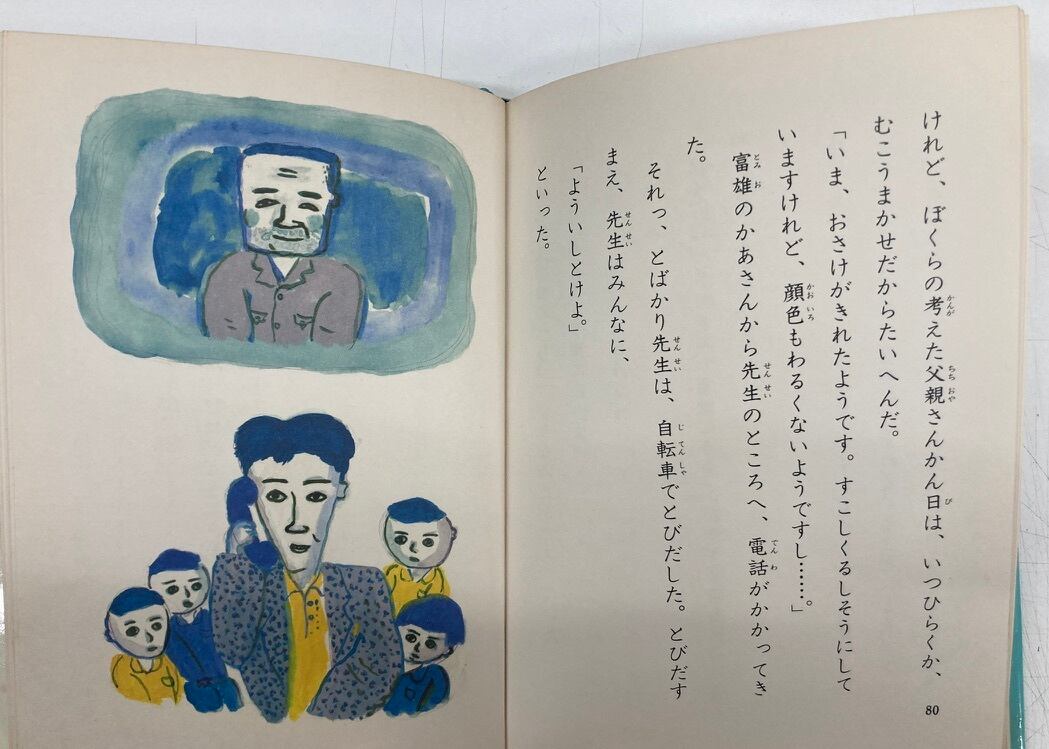 けれど、ぼくらの考えた父親さんかん日は、いつひらくか、
むこうまかせだからたいへんだ。
「いま、おさけがきれたようです。すこしくるしそうにして
いますけれど、顔色もわるくないようですし……。」
富雄のかあさんから先生のところへ、電話がかかってき
た。
それっ、とばかり先生は、自転車でとびだした。とびだす
まえ、先生はみんなに、
「よういしとけよ。」
といった。
80